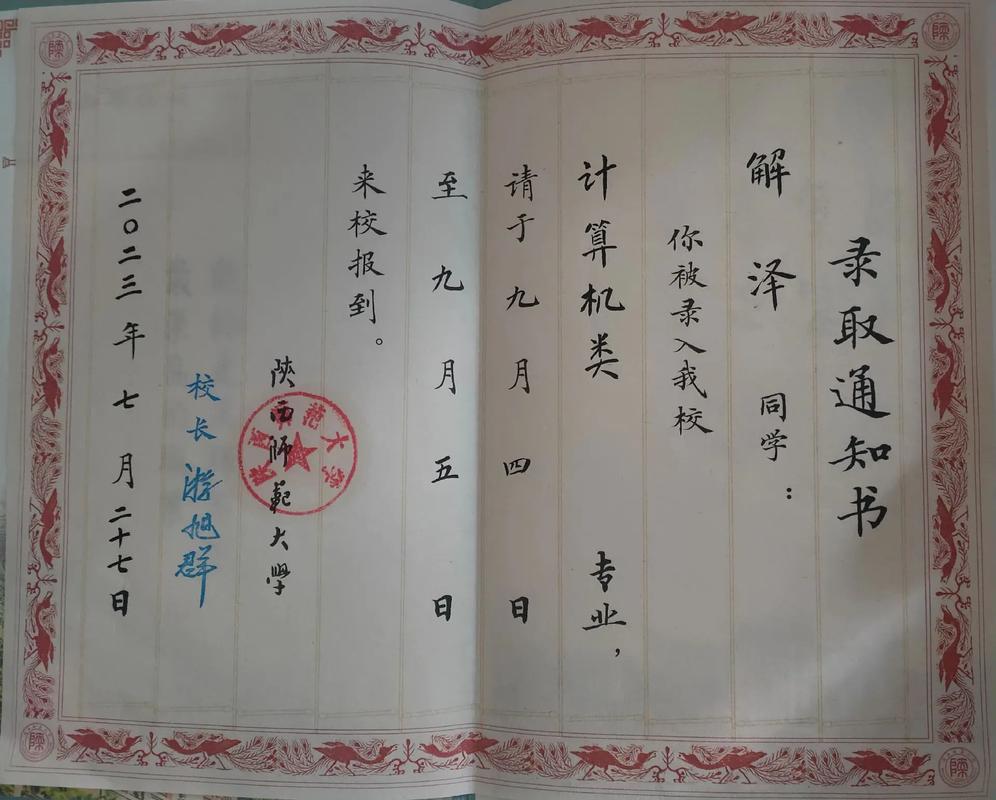 录取通知书
解泽 同学：
你被录入我校
计算机类 专业，
请于九月四日
至九月五日
来校报到。
陕西师範大学
校长 游旭群
二〇二三年七月二十七日